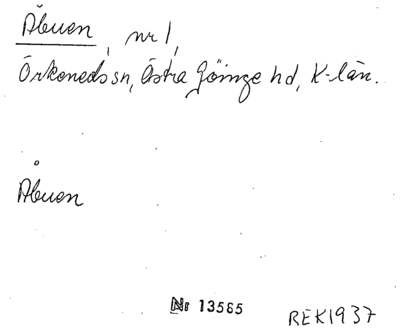 Åbuen, nr 1,
Örkeneds sn, Östra Göinge hd, K-län.
Åbuen
Nr 13565
REK1937